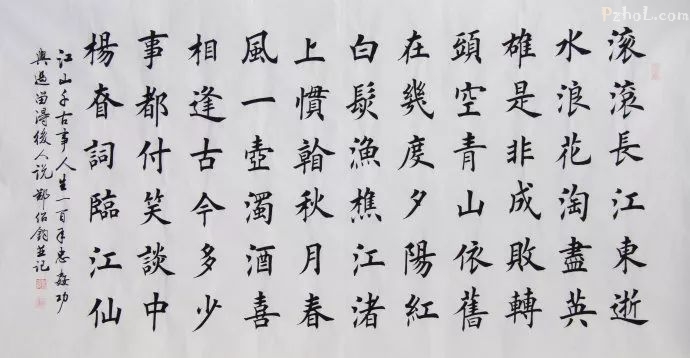 滚滚長江東逝
水浪花淘盡英
雄是非成敗轉
頭空青山依舊
在幾度夕陽紅
白髮漁樵江渚
上慣翰秋月春
風一壺濁酒喜
相逢古今多少
事都付笑談中
楊昚詞臨江仙
江山千古事人生一百年忠姦功
與過留得後人说 鄭伯鈞並记
PzhoL.com